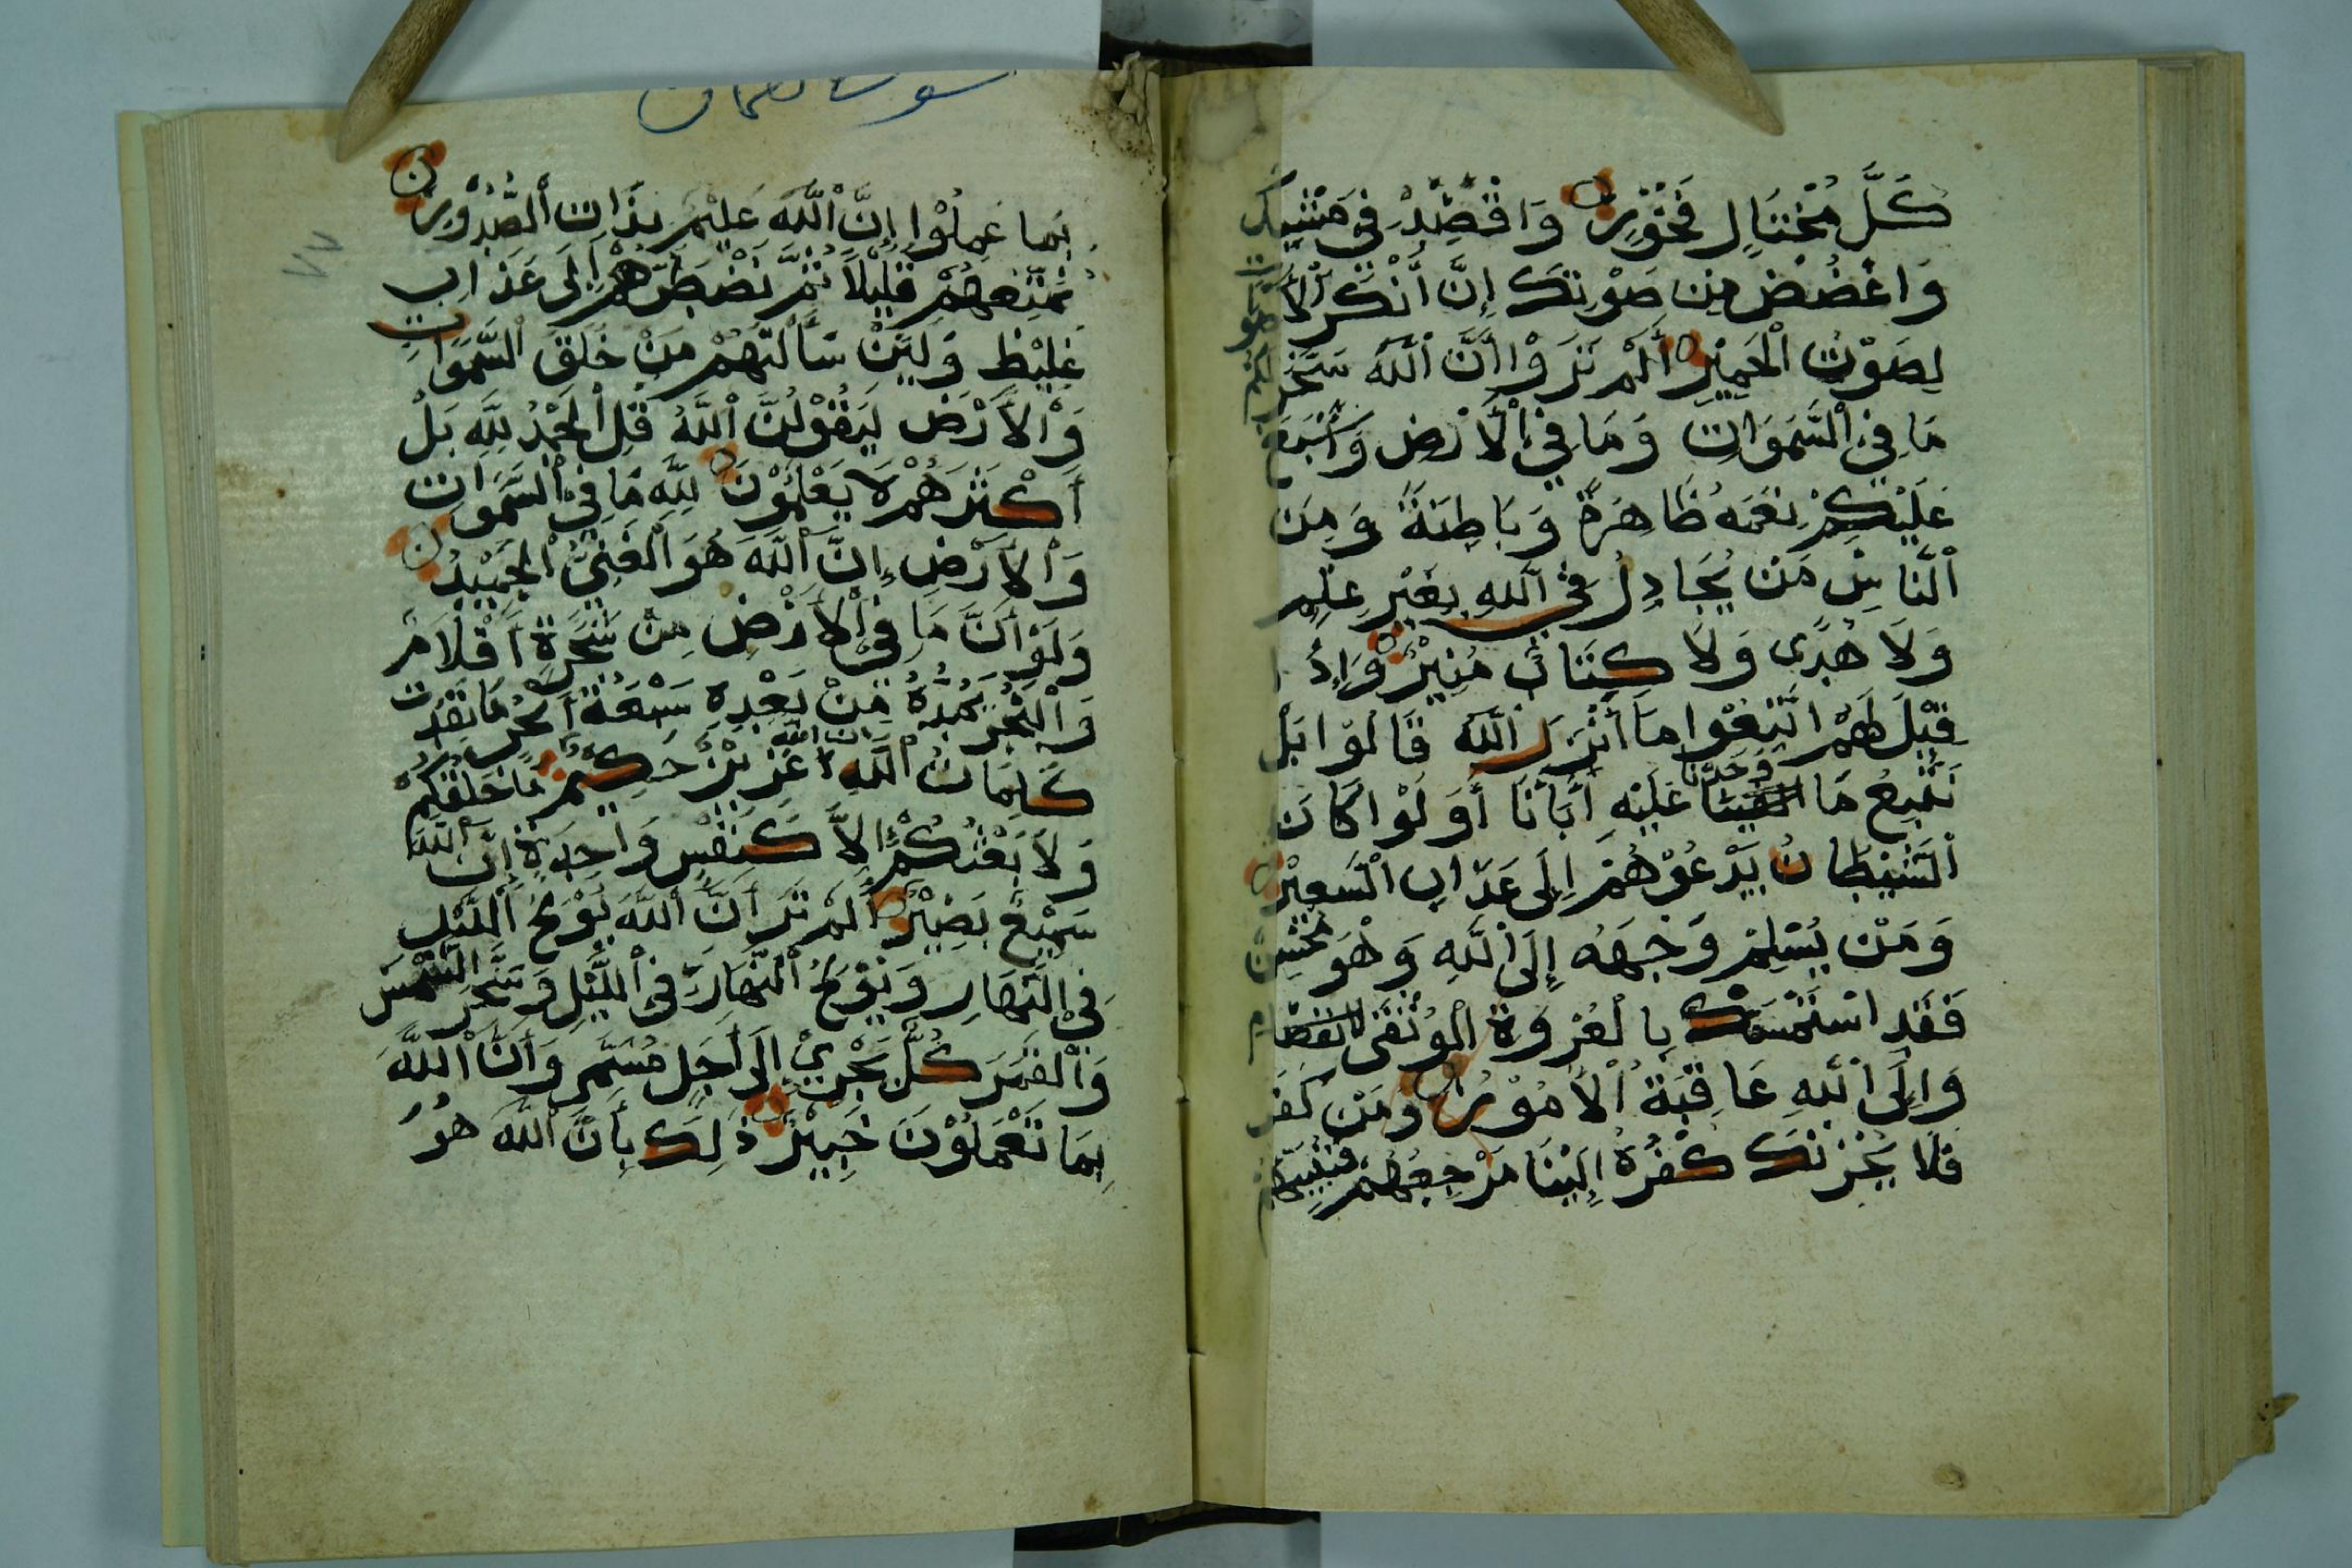 كُلَّ مُخْتَالٍ فَخُوْرٍ وَاقْصِدْ فِي مَشْيِكَ
وَاغْضُضْ مِنْ صَوْتِكَ إِنَّ أَنْكَرَ الْأَ
لَصَوْتُ الْحَمِيْرِ أَلَمْ تَرَوْا أَنَّ اللَّهَ سَخَّرَ لَكُمْ
مَا فِي السَّمَوَاتِ وَمَا فِي الْأَرْضِ وَأَسْبَغَ
عَلَيْكُمْ نِعَمَهُ ظَاهِرَةً وَبَاطِنَةً وَمِنَ
النَّاسِ مَنْ يُجَادِلُ فِي اللَّهِ بِغَيْرِ عِلْمٍ
وَلَا هُدًى وَلَا كِتَابٍ مُنِيْرٍ وَإِذَا
قِيْلَ لَهُمُ اتَّبِعُوا مَا أَنْزَلَ اللَّهُ قَالُوْا بَلْ
نَتَّبِعُ مَا وَجَدْنَا عَلَيْهِ أَبَآءَنَا أَوَ لَوْ كَانَ
الشَّيْطَانُ يَدْعُوْهُمْ إِلَى عَذَابِ السَّعِيْرِ
وَمَنْ يُسْلِمْ وَجْهَهُ إِلَى اللَّهِ وَهُوَ مُحْسِنٌ
فَقَدِ اسْتَمْسَكَ بِالْعُرْوَةِ الْوُثْقَى
وَإِلَى اللَّهِ عَاقِبَةُ الْأُمُوْرِ وَمَنْ كَفَرَ
فَلَا يَحْزُنْكَ كُفْرُهُ إِلَيْنَا مَرْجِعُهُمْ فَنُنَبِّئُهُمْ
سورة لقمان
٧٧
بِمَا عَمِلُوْا إِنَّ اللَّهَ عَلِيْمٌ بِذَاتِ الصُّدُوْرِ
نُمَتِّعُهُمْ قَلِيْلًا ثُمَّ نَضْطَرُّهُمْ إِلَى عَذَابٍ
غَلِيْظٍ وَلَئِنْ سَأَلْتَهُمْ مَنْ خَلَقَ السَّمَوَاتِ
وَالْأَرْضَ لَيَقُوْلُنَّ اللَّهُ قُلِ الْحَمْدُ لِلَّهِ بَلْ
أَكْثَرُهُمْ لَا يَعْلَمُوْنَ لِلَّهِ مَا فِي السَّمَوَاتِ
وَالْأَرْضِ إِنَّ اللَّهَ هُوَ الْغَنِيُّ الْحَمِيْدُ
وَلَوْ أَنَّ مَا فِي الْأَرْضِ مِنْ شَجَرَةٍ أَقْلَامٌ
وَالْبَحْرُ يَمُدُّهُ مِنْ بَعْدِهِ سَبْعَةُ أَبْحُرٍ مَا نَفِدَتْ
كَلِمَاتُ اللَّهِ إن الله عَزِيْزٌ حَكِيْمٌ مَا خَلْقُكُمْ
وَلَا بَعْثُكُمْ إِلَّا كَنَفْسٍ وَاحِدَةٍ إِنَّ اللَّهَ
سَمِيْعٌ بَصِيْرٌ أَلَمْ تَرَ أَنَّ اللَّهَ يُوْلِجُ الَّيْلَ
فِي النَّهَارِ وَيُوْلِجُ النَّهَارَ فِي اللَّيْلِ وَسَخَّرَ الشَّمْسَ
وَالْقَمَرَ كُلٌّ يَجْرِيْ إِلَى أَجَلٍ مُسَمًّى وَأَنَّ اللَّهَ
بِمَا تَعْمَلُوْنَ خَبِيْرٌ ذَلِكَ بِأَنَّ اللَّهَ هُوَ